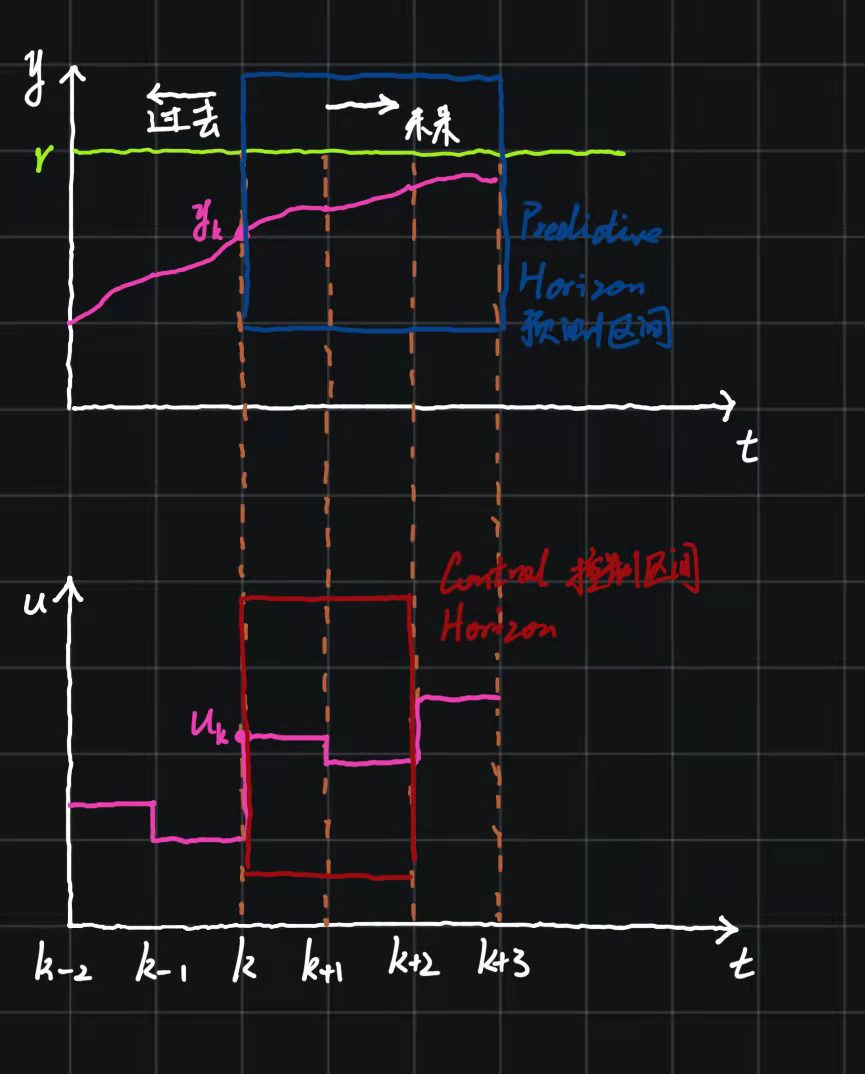 y
过去
未来
r
y_k
Predictive
Horizon
预测区间
t
Control 控制区间
Horizon
u
u_k
k-2 k-1 k k+1 k+2 k+3 t